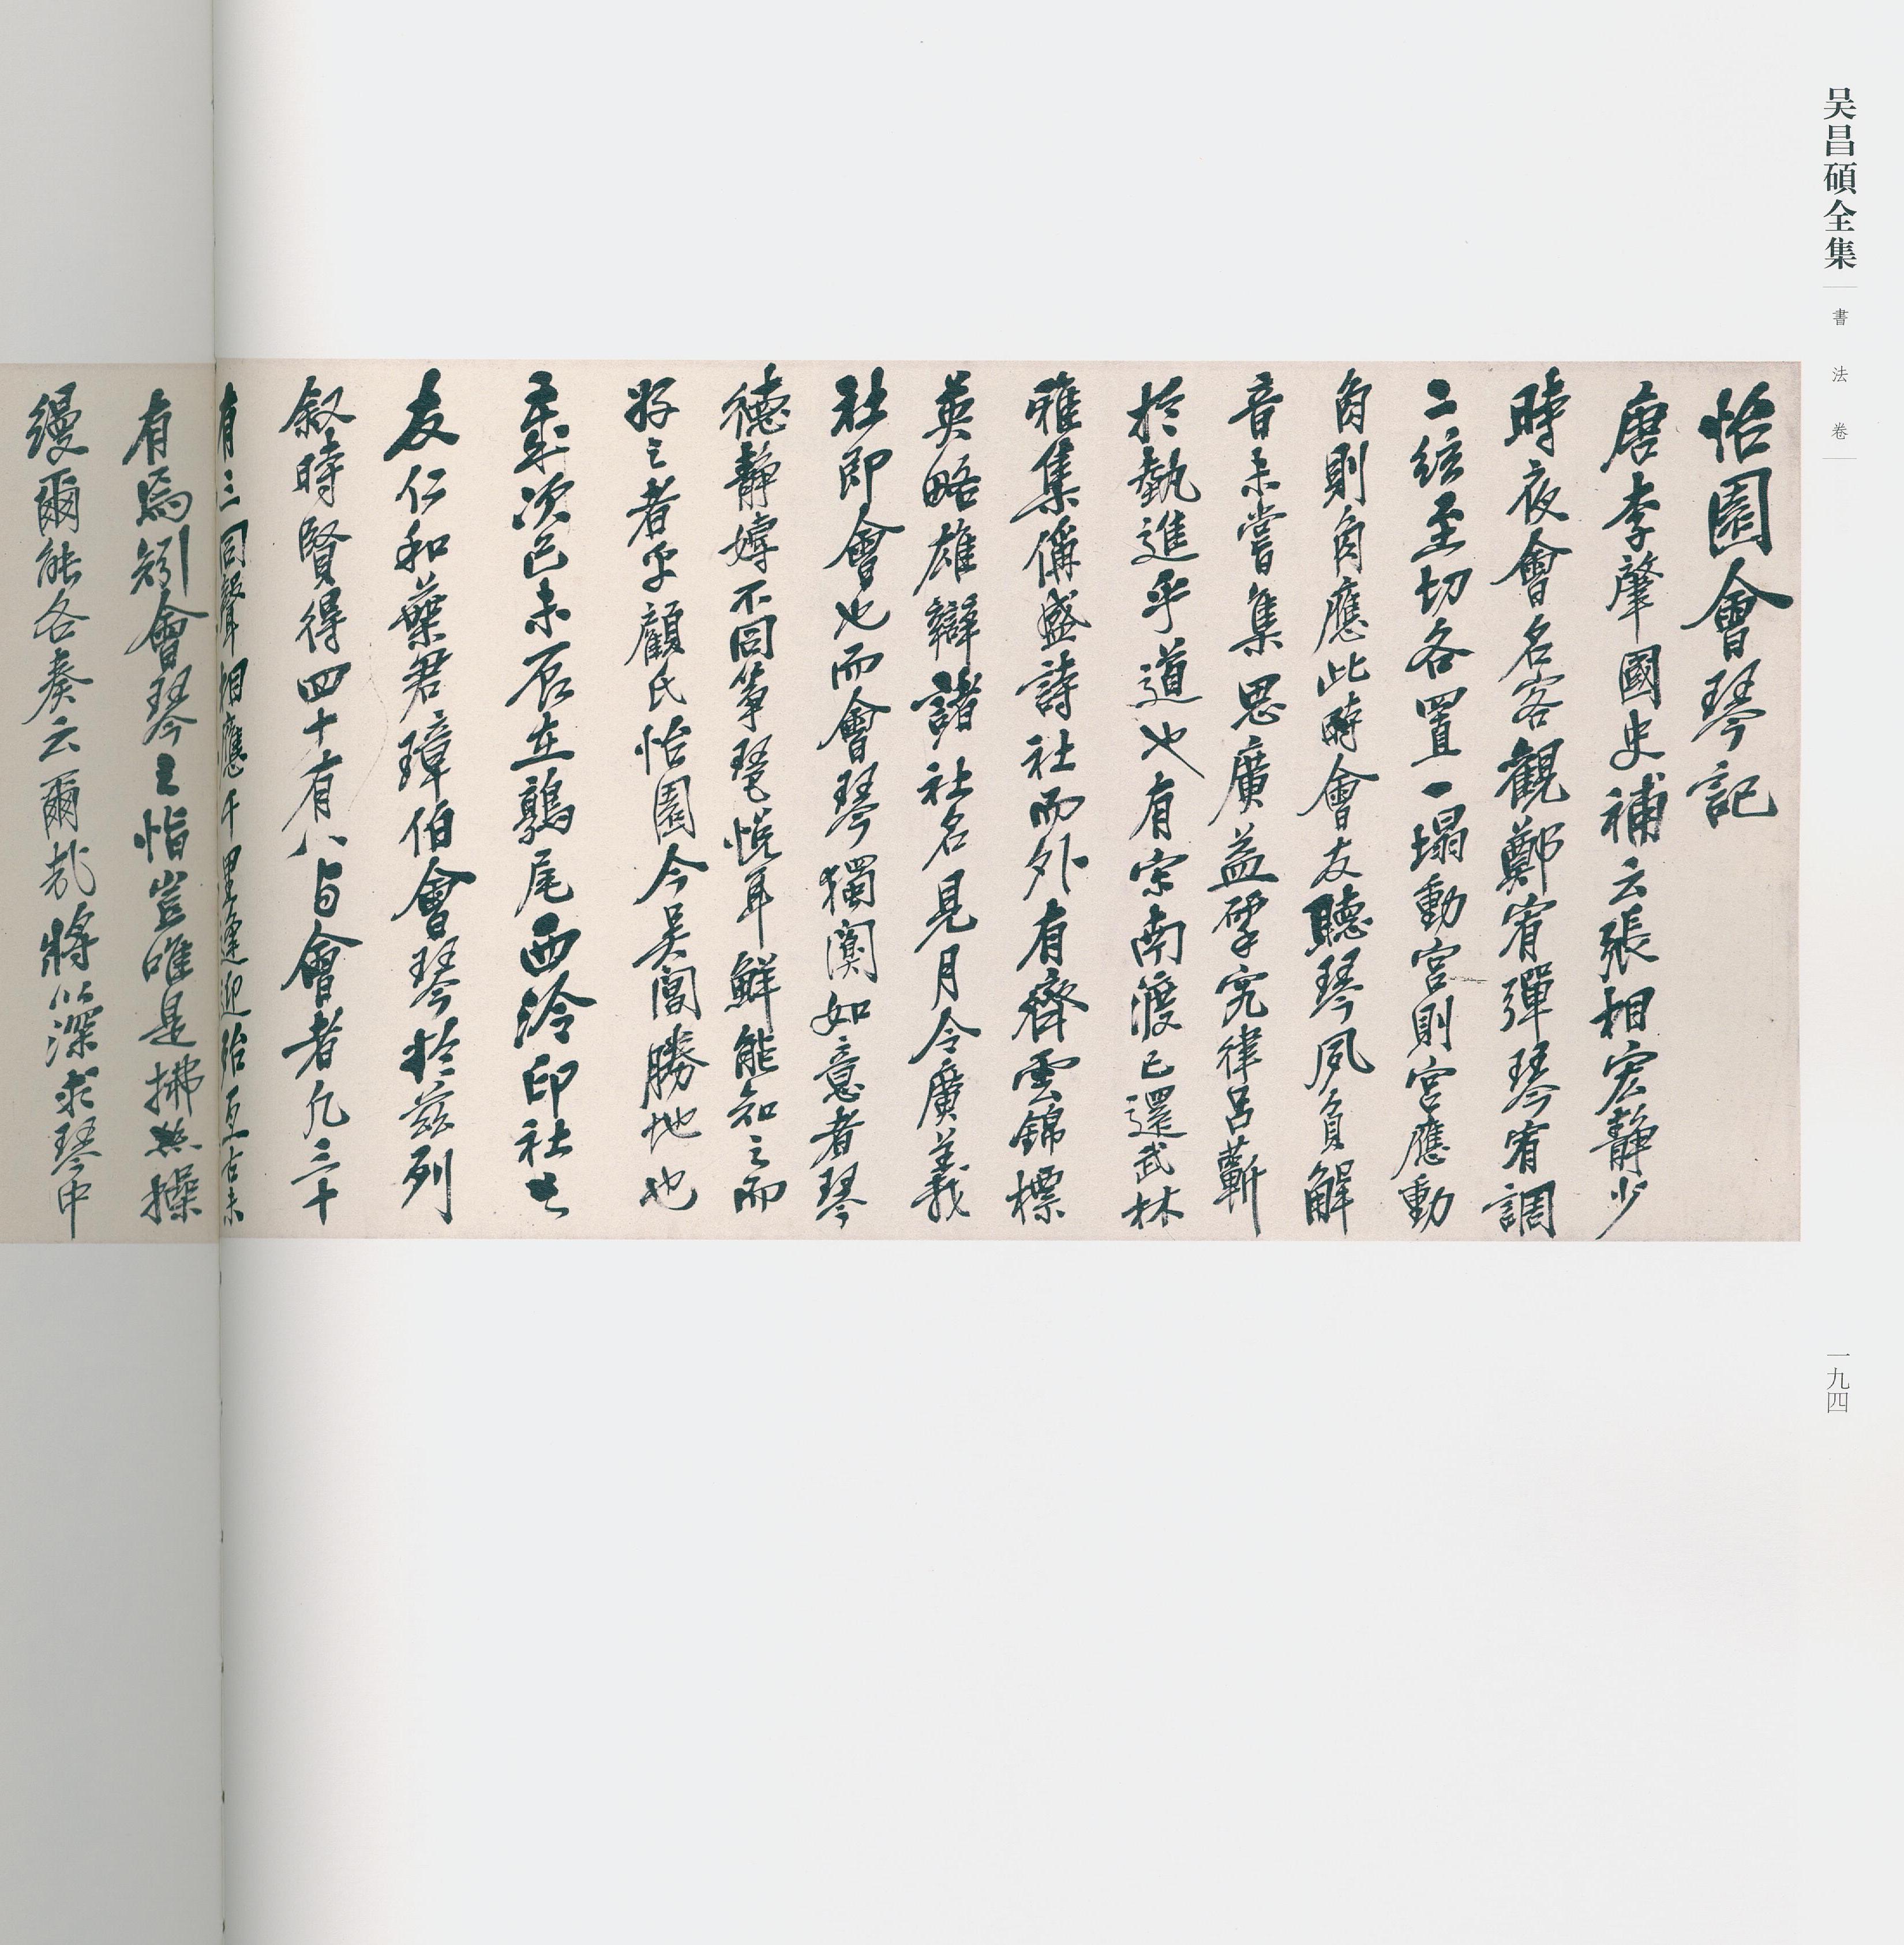 吴昌碩全集
書法卷
一九四
怡園會琴記
唐李肇國史補云張相宏靜少
時夜會名客觀鄭宥彈琴宥調
二絃至切各置一榻動宮則宮應動
角則角應此時會友聽琴夙負解
音未嘗集思廣益擘究律呂蘄
於執進乎道也有宗南渡已還武林
雅集偁盛詩社而外有齊雲錦標
英略雄辯諸社名見月令廣義
社即會也而會琴獨闃如意者琴
德靜嫥不同箏琶悅耳鮮能知之而
好之者乎顧氏怡園今吳閶勝地也
年次己未辰在鶉尾西泠印社之
友仁和葉君璋伯會琴於茲列
叙時賢得四十有八与會者凡三十
有三同聲相應千里逢迎殆亙古未
有焉矧會琴之恉豈唯是拂絲操
縵爾能各奏云爾哉將以深求琴中